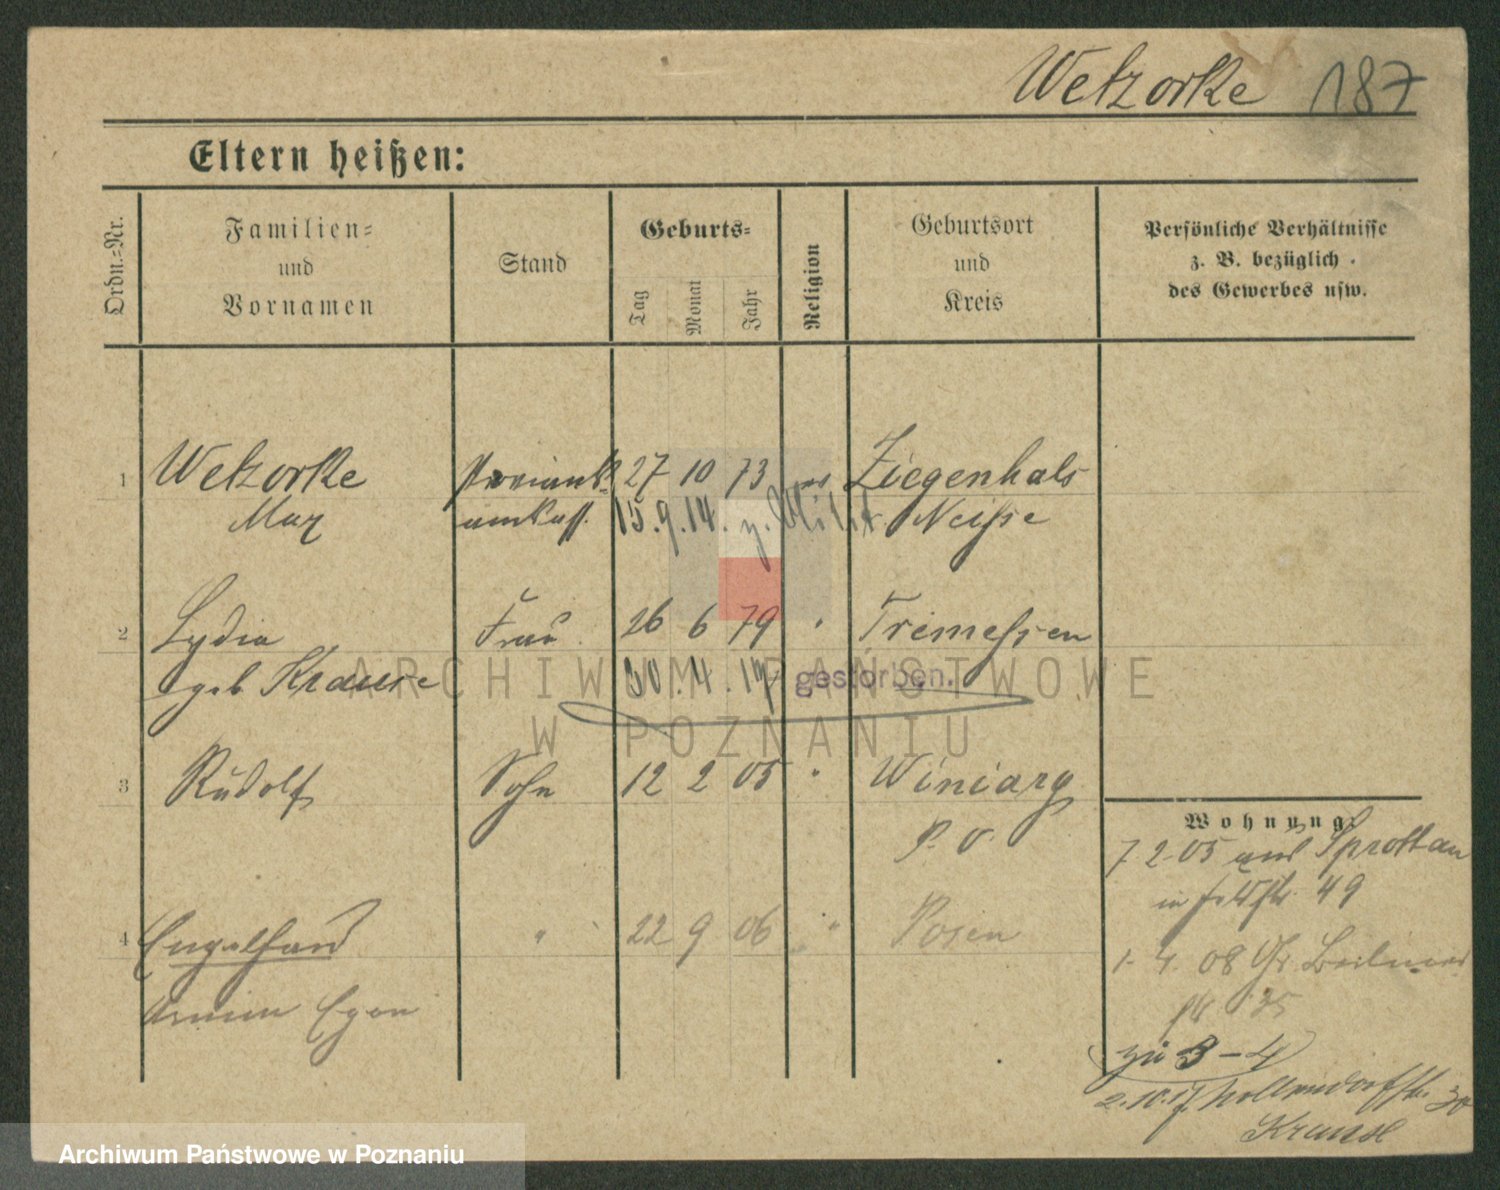 Wetzorke 187
Eltern heißen:
Ordn.-Nr.
Familien-
und
Vornamen
Stand
Geburts-
Tag
Monat
Jahr
Religion
Geburtsort
und
Kreis
Persönliche Verhältnisse
z. B. bezüglich
des Gewerbes usw.
1 Wetzorke Proviant 27 10 73 Ziegenhals
Max 15.9.14. z. Milit Neisse
2 Lydia Frau 26 6 79 " Tremessen
geb Krause 30.4.17 gestorben.
3 Rudolf Sohn 12 2 05 " Winiary
P. O.
Wohnung:
7 2-05 aus Sprottau
in Feldstr. 49
4 Engelhard " 22 9 06 " Posen
1. 4. 08 Gr Berliner
Armin Egon
str 35
zu 3-4
2.10.17 Nollendorfstr. 30
Krause
ARCHIWUM PAŃSTWOWE
W POZNANIU
Archiwum Państwowe w Poznaniu